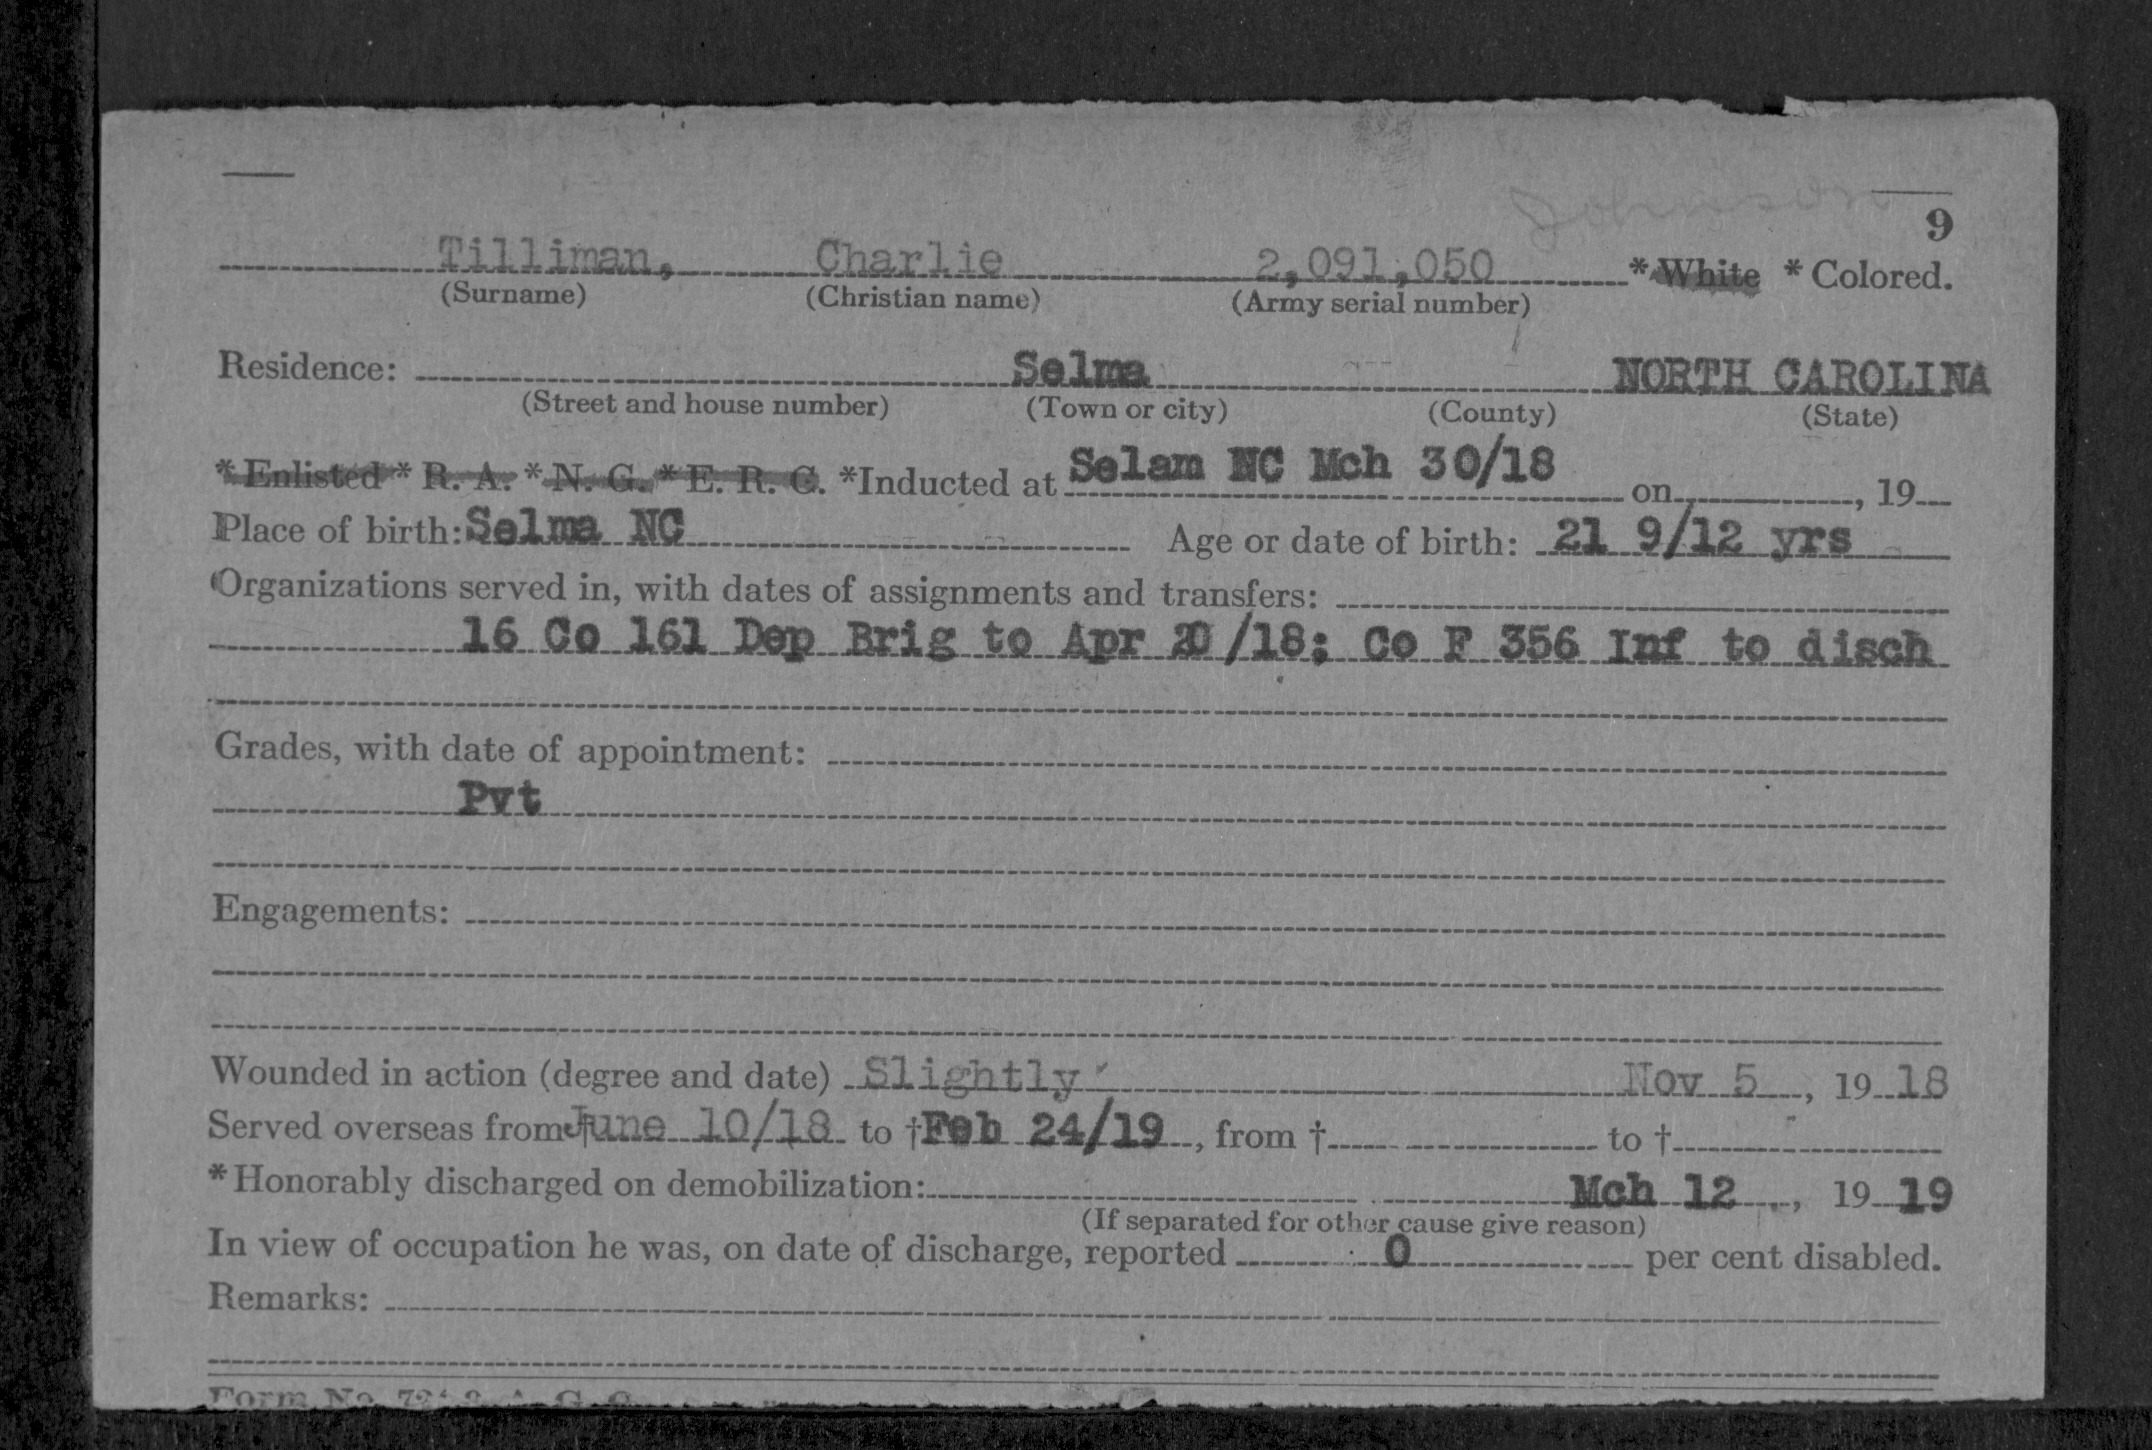 Johnson
9
Tilliman, Charlie 2,091,050 *White *Colored.
(Surname) (Christian name) (Army serial number)
Residence: Selma NORTH CAROLINA
(Street and house number) (Town or city) (County) (State)
*Enlisted *R. A. *N. G. *E. R. C. *Inducted at Selam NC Mch 30/18 on , 19
Place of birth: Selma NC Age or date of birth: 21 9/12 yrs
Organizations served in, with dates of assignments and transfers:
16 Co 161 Dep Brig to Apr 20/18; Co F 356 Inf to disch
Grades, with date of appointment:
Pvt
Engagements:
Wounded in action (degree and date) Slightly Nov 5, 19 18
Served overseas from † June 10/18 to † Feb 24/19, from † to †
*Honorably discharged on demobilization: Mch 12, 19 19
(If separated for other cause give reason)
In view of occupation he was, on date of discharge, reported 0 per cent disabled.
Remarks:
Form No.